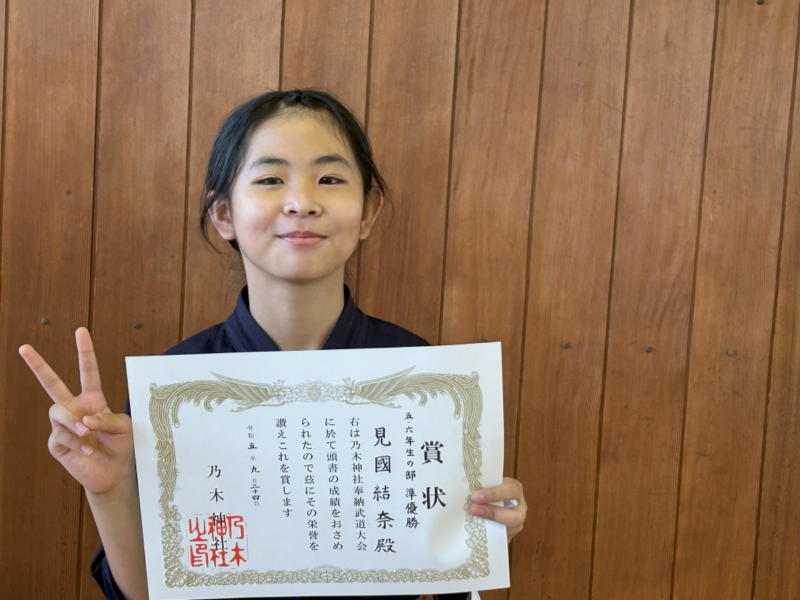 賞状
五・六年生の部 準優勝
見國結奈殿
右は乃木神社奉納武道大会
に於て頭書の成績をおさめ
られたので茲にその栄誉を
讃えこれを賞します
令和五年九月二十四日
乃木神社
乃木
神社
之印